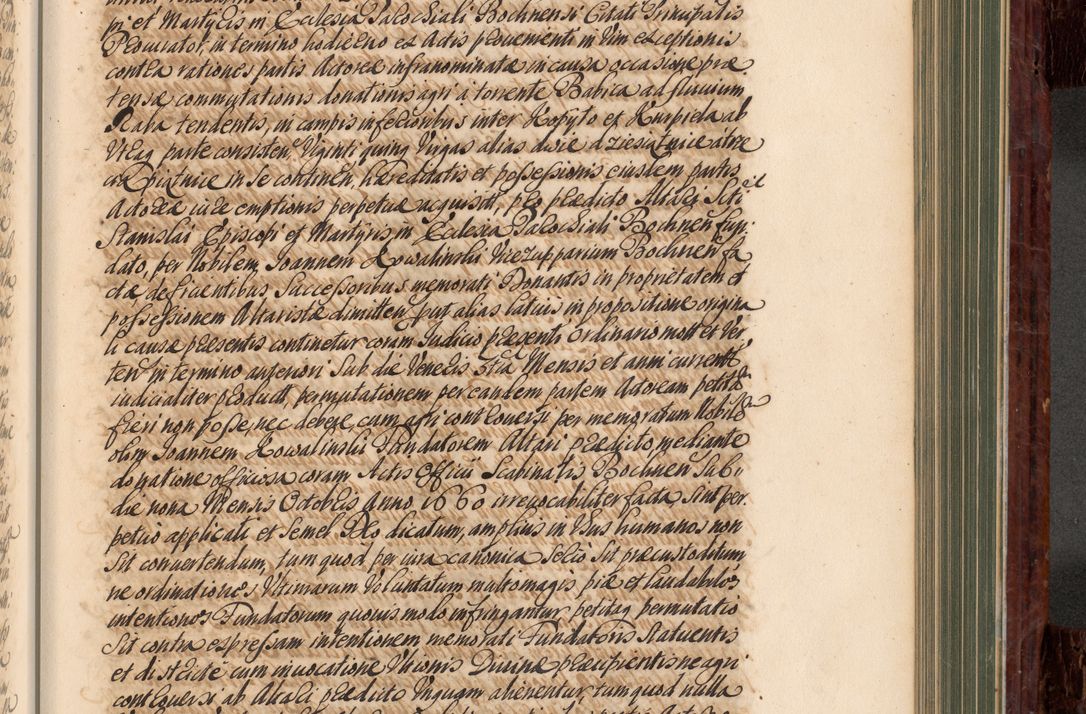 et Martyris in Ecclesia Parochiali Bochnensi Citati Principalis
Procurator, in termino hodierno ex Actis provenienti in vim exceptionis
contra rationes partis Actoreæ infranominatæ in causa occasione præ
tensæ commutationis donationis agri a torrente Babica ad fluvium
Raba tendentis, in campis inferioribus inter Kopyto et Kurpiela ab
vtraq parte consisten. Viginti quinq Virgas alias dwie dziesiątnice á trze
cią piątnice in se continen, hæreditatis et possessionis eiusdem partis
Actoreæ iure emptionis perpetuæ acquisit, pro prædicto Altari Scti
Stanislai Episcopi et Martyris in Ecclesia Parochiali Bochnen fun
dato, per Nobilem Joannem Kowalinski Vicezupparium Bochnen fa
ctæ deficientibus Successoribus memorati Donantis in proprietatem et
possessionem Altaristæ dimitten, put alias latius in propositione origina
li causæ præsentis continetur coram Judicio præsenti Ordinario mott et ver
ten in termino anteriori Sub die Veneris 3tia Mensis et anni current
iudicialiter product, permutationem per eandem partem Actoream petita
fieri non posse nec debere, cum agri controversi per memoratum Nobile
olim Joannem Kowalinski Fundatorem Altari prædicto mediante
donatione officiosa coram Actis Officii Scabinalis Bochnen Sub
die nona Mensis Octobris Anno 1660 irrevocabiliter facta sint per
petuo applicati et semel Deo dicatum, amplius in vsus humanos non
sit convertendum, tum quod per iura canonica Selio sit præcustoditum
ne ordinationes Vltimarum Voluntatum multo magis piæ et laudabiles
intentiones Fundatorum quovis modo infringantur, petitaq permutatio
sit contra expressam intentionem memorati Fundatoris statuentis
et districte cum invocatione Vltionis Divinæ præcipientis ne agri
controversi ab Altari prædicto vnquam alienentur, tum quod nulla